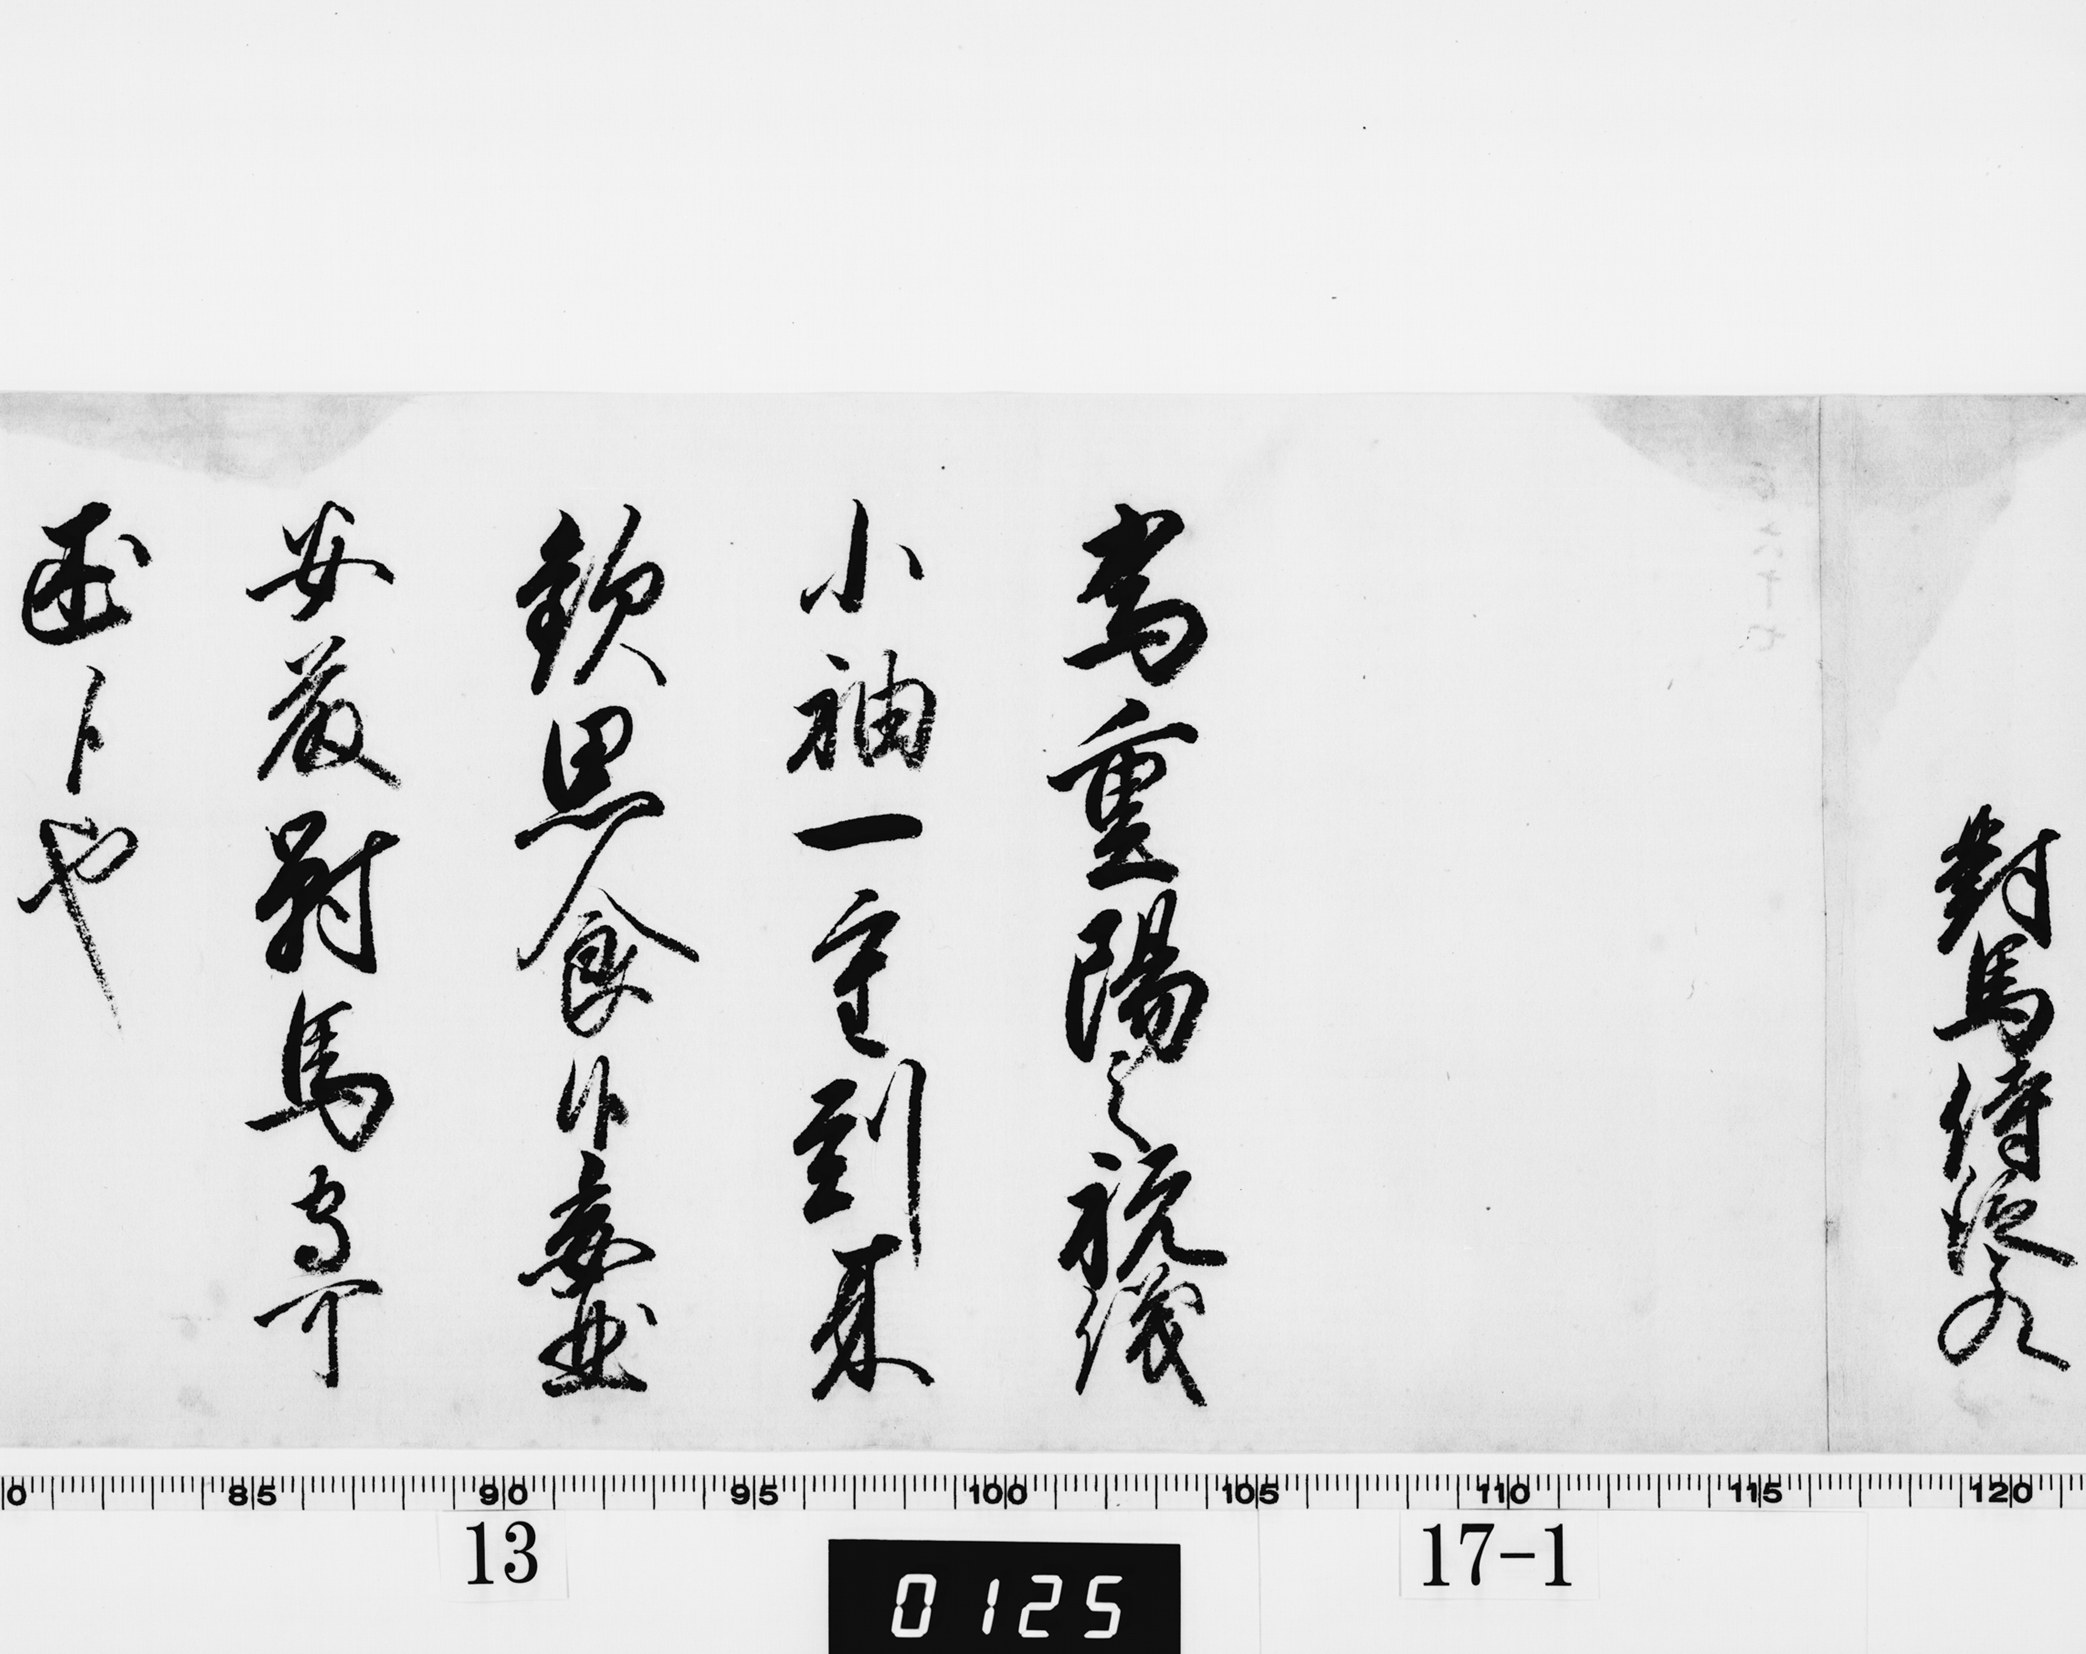 對馬侍從殿
為重陽之祝儀
小袖一重到来
歓思食候委曲
安藤對馬守可
述候也
85 90 95 100 105 110 115 120
13
17-1
0125